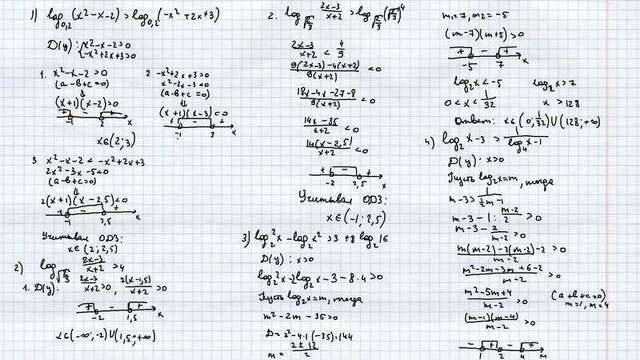 1) log₀,₂(x²-x-2) > log₀,₂(-x²+2x+3)
D(y): {x²-x-2>0
{-x²+2x+3>0
1. x²-x-2>0
(a-b+c=0)
(x+1)(x-2)>0
+ - +
-1 2 x
2. -x²+2x+3>0
x²-2x-3<0
(a-b+c=0)
(x+1)(x-3)<0
+ - +
-1 3 x
x∈(2;3)
3. x²-x-2 < -x²+2x+3
2x²-3x-5<0
(a-b+c=0)
2(x+1)(x-2,5)<0
+ - +
-1 2,5 x
Учитывая ОДЗ:
x∈(2;2,5)
2) log (2x-3)/(x+2) > 4
1. D(y): (2x-3)/(x+2)>0, 2(x-1,5)/(x+2)>0
+ - +
-2 1,5 x
x∈(-∞;-2)∪(1,5;+∞)
2. log (2x-3)/(x+2) > log
(2x-3)/(x+2) < 4/9
(9(2x-3)-4(x+2))/(9(x+2)) <0
(18x-4x-27-8)/(9(x+2)) <0
(14x-35)/(x+2) <0
(14(x-2,5))/(x+2) <0
+ - +
-2 2,5 x
Учитывая ОДЗ:
x∈(-1;2,5)
3) log₂²x - log₂x² > 3 + 8log₂16
D(y): x>0
log₂²x-2log₂x-3-8·4>0
Пусть log₂x=m, тогда
m²-2m-35>0
D=2²-4·1·(-35)=144
m = (2±12)/2
m₁=7, m₂=-5
(m-7)(m+5)>0
+ - +
-5 7 x
log₂x<-5 log₂x>7
0<x<1/32 x>128
Ответ: x∈(0;1/32)∪(128;+∞)
4) log₂x-3 > 1/(log₄x-1)
D(y): x>0
Пусть log₂x=m, тогда
m-3 > 1/(½m-1)
m-3-1:(m-2)/2>0
m-3-2/(m-2)>0
(m(m-2)-3(m-2)-2)/(m-2)>0
(m²-2m-3m+6-2)/(m-2)>0
(m²-5m+4)/(m-2)>0
(a+b+c=0)
m=1, m=4
((m-1)(m-4))/(m-2)>0
- + - +
1 2 4 m